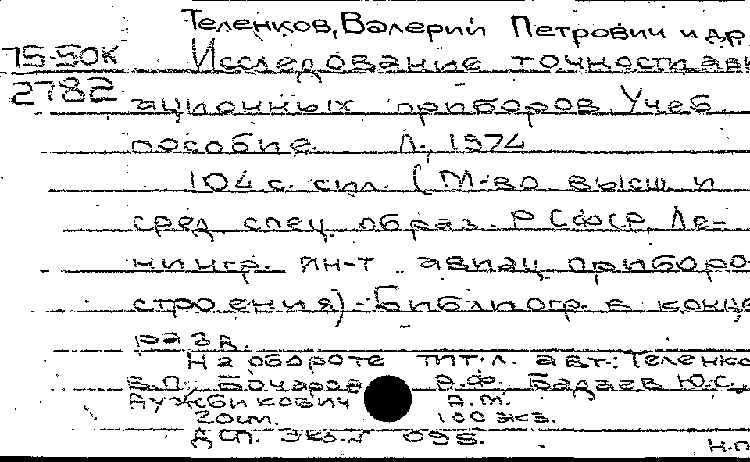 Теленков, Валерий Петрович и др.
75-50к
Исследование точности ави
2782
ационных приборов. Учеб.
пособие. Л., 1974
104 с. с ил. (М-во высш. и
сред. спец. образ. РСФСР. Ле-
нингр. ин-т авиац. приборо-
строения) - Библиогр. в конце
разд.
На обороте тит. л. авт.: Теленко
В.П., Бочаров А.Ф. Бадаев Ю.С.,
Лужбикович А.М.
20 см. 100 экз.
ДСП. Экз. № 096.
н.п